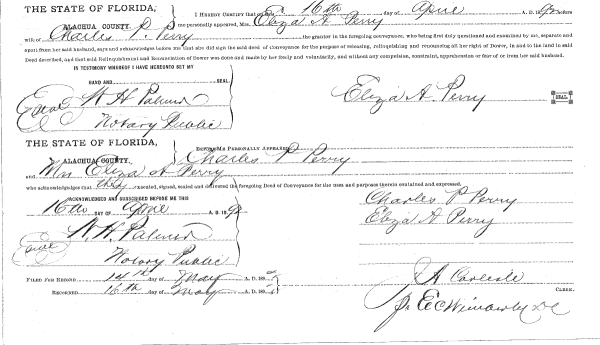 THE STATE OF FLORIDA,
ALACHUA COUNTY.
I HEREBY CERTIFY that on 16th day of April A. D. 1892 before
me personally appeared, Mrs. Eliza A Perry
wife of Charles P. Perry the grantor in the foregoing conveyance, who being first duly questioned and examined by me, separate and
apart from her said husband, says and acknowledges before me that she did sign the said deed of Conveyance for the purpose of releasing, relinquishing and renouncing all her right of Dower, in and to the land in said
Deed described, and that said Relinquishment and Renunciation of Dower was done and made by her freely and voluntarily, and without any compulsion, constraint, apprehension or fear of or from her said husband.
IN TESTIMONY WHEREOF I HAVE HEREUNTO SET MY
HAND AND SEAL
Seal W H Palmer
Notary Public
Eliza A. Perry SEAL
THE STATE OF FLORIDA,
ALACHUA COUNTY.
BEFORE ME PERSONALLY APPEARED
Charles P Perry
and Mrs Eliza A Perry
who acknowledges that they executed, signed, sealed and delivered the foregoing Deed of Conveyance for the uses and purposes therein contained and expressed.
ACKNOWLEDGED AND SUBSCRIBED BEFORE ME THIS
16th DAY OF April A. D. 1892
W. H. Palmer
Seal Notary Public
Charles P Perry
Eliza A Perry
FILED FOR RECORD 14th day of May A. D. 189
RECORDED 16th day of May A. D. 189
Carlisle
CLERK.
pr E C Wimberly D C